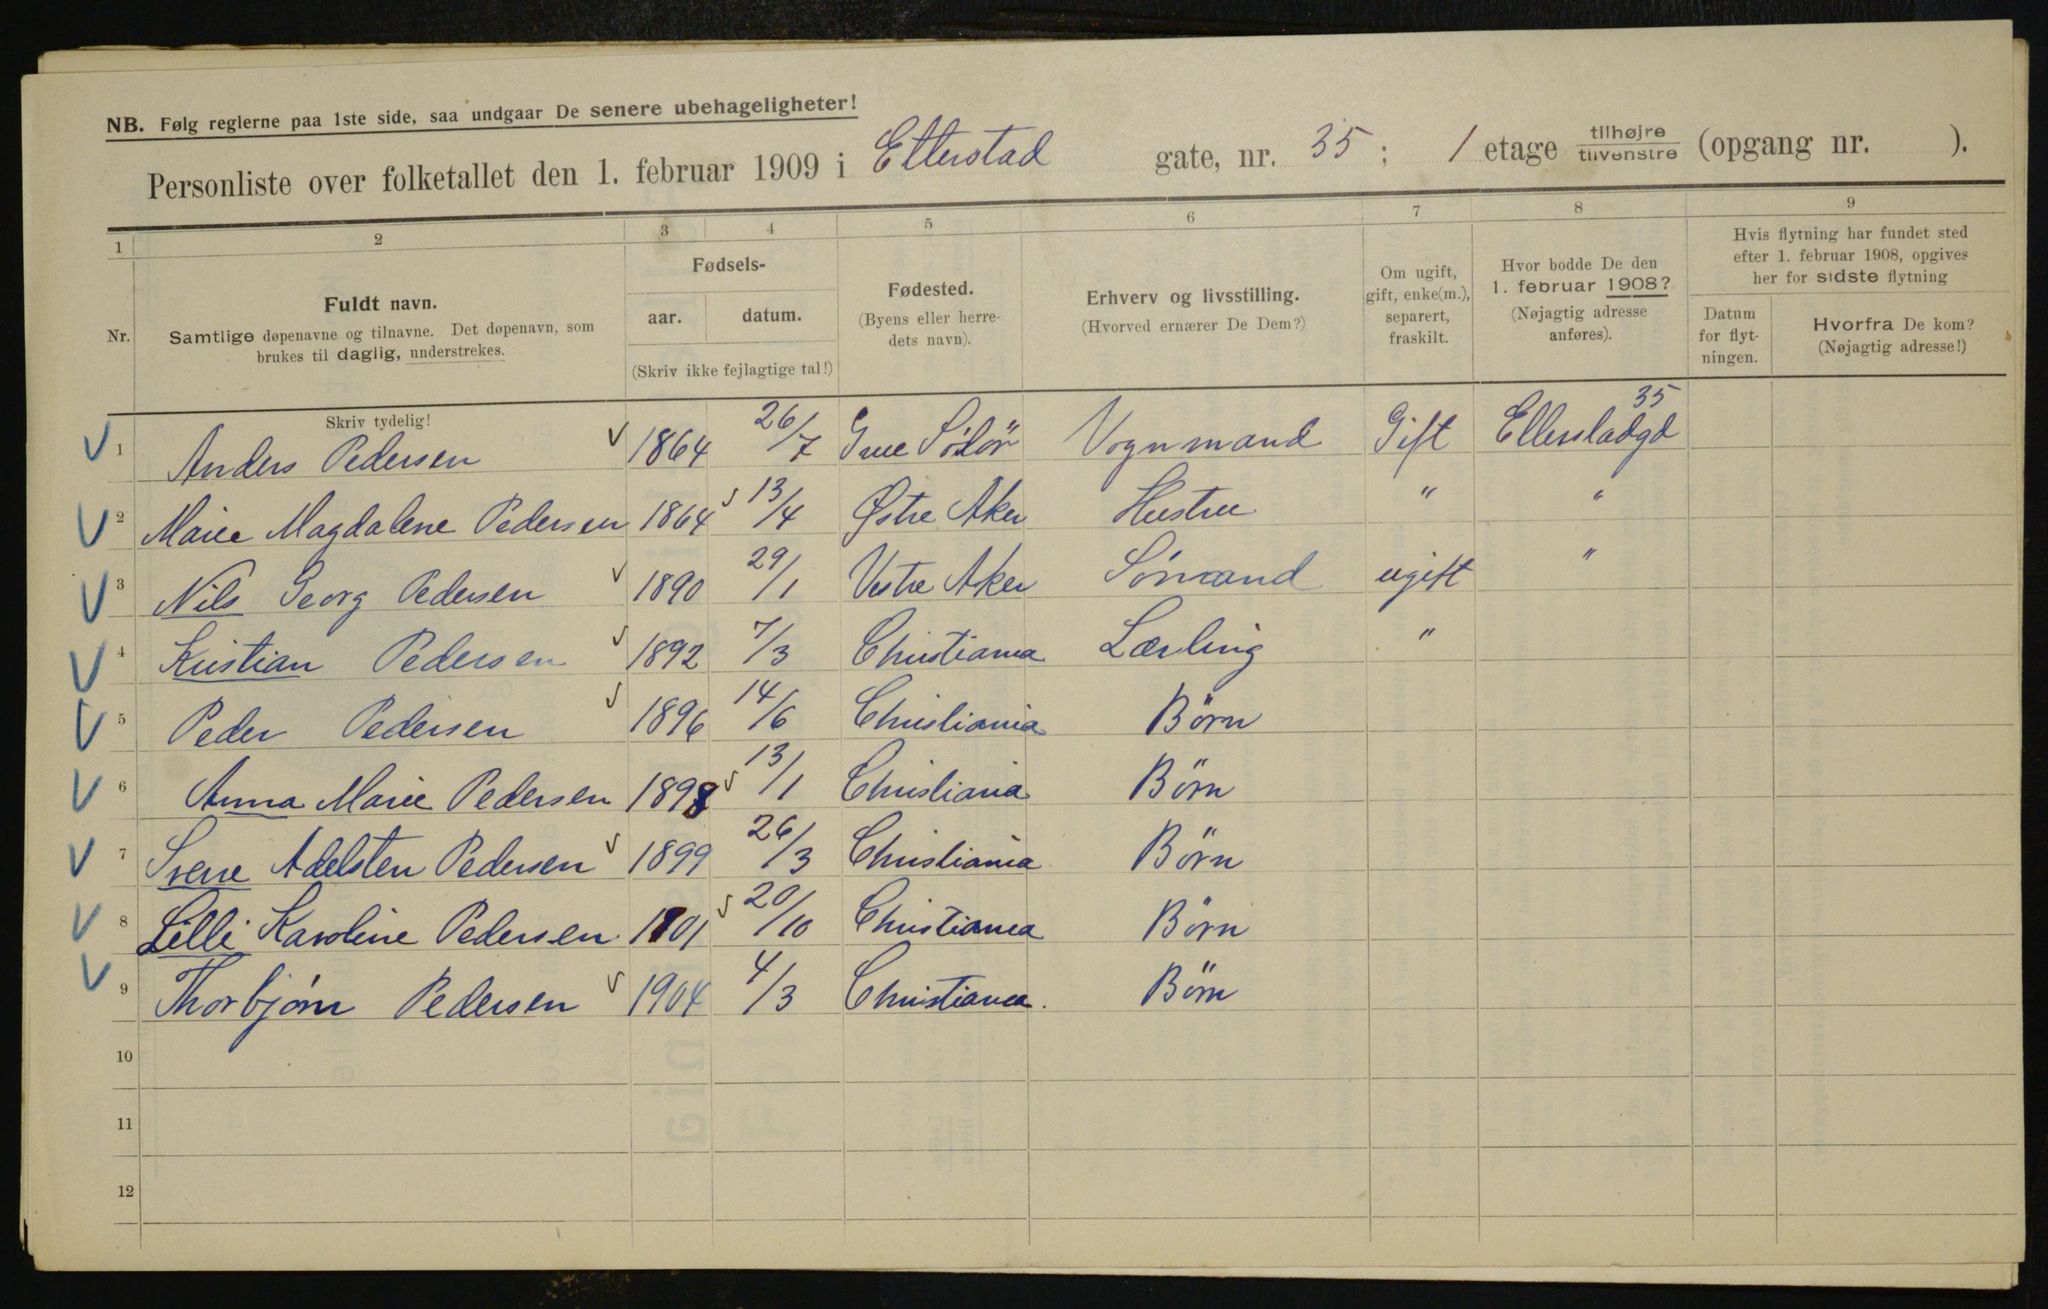 NB. Følg reglerne paa 1ste side, saa undgaar De senere ubehageligheter!
Personliste over folketallet den 1. februar 1909 i Etterstad gate, nr. 35; 1 etage tilhøjre/tilvenstre (opgang nr. ).
1 2 3 4 5 6 7 8 9
Nr.
Fuldt navn.
Samtlige døpenavne og tilnavne. Det døpenavn, som
brukes til daglig, understrekes.
Skriv tydelig!
Fødsels-
aar. datum.
(Skriv ikke fejlagtige tal!)
Fødested.
(Byens eller herre-
dets navn).
Erhverv og livsstilling.
(Hvorved ernærer De Dem?)
Om ugift,
gift, enke(m.),
separert,
fraskilt.
Hvor bodde De den
1. februar 1908?
(Nøjagtig adresse
anføres).
Hvis flytning har fundet sted
efter 1. februar 1908, opgives
her for sidste flytning
Datum
for flyt-
ningen.
Hvorfra De kom?
(Nøjagtig adresse!)
1 Anders Pedersen 1864 26/7 Grue Solör Vognmand Gift Etterstadgd 35
2 Marie Magdalene Pedersen 1864 13/4 Østre Aker Hustru " "
3 Nils Georg Pedersen 1890 29/1 Vestre Aker Sömand ugift "
4 Kristian Pedersen 1892 7/3 Christiania Lærling "
5 Peder Pedersen 1896 14/6 Christiania Börn
6 Anna Marie Pedersen 1898 13/1 Christiania Börn
7 Sverre Adelsten Pedersen 1899 26/3 Christiania Börn
8 Lilli Karoline Pedersen 1901 20/10 Christiania Börn
9 Thorbjørn Pedersen 1904 4/3 Christiania. Börn
10
11
12